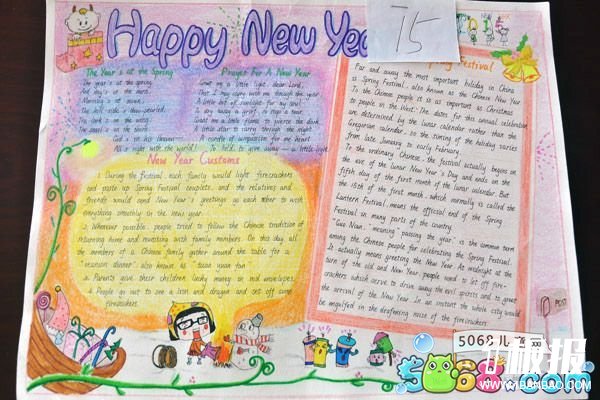 Happy New Yea
15
The Year's at the Spring
The year's at the spring,
And day's at the morn;
Morning's at seven;
The hill-side's dew-pearled;
The lark's on the wing;
The snail's on the thorn;
God's in his Heaven
All's right with the world!
Prayer For A New Year
Grant me a little light, dear Lord,
That I may carry with me through the year
A little bit of sunlight for my soul
To dry away a grief, to stop a tear.
Grant me a little flame to pierce the dark
A little star to carry through the night
A candle of compassion for my heart
To hold, to give away — a little light
New Year Customs
1. During the festival, each family would light firecrackers
and paste up Spring Festival couplets, and the relatives and
friends would send New Year's greetings go each other to wish
everything smoothly in the new year.
2. Whenever possible, people tried to follow the Chinese tradition of
returning home and reuniting with family members. On this day all
the members of a Chinese family gather around the table for a
"reunion dinner" also known as "tuan yuan fan"
3. Parents give their children lucky money in red envelopes.
4. People go out to see a lion and dragon and set off some
firecrackers.
Festival
Far and away the most important holiday in China
is Spring Festival, also known as the Chinese New Year
To the Chinese people it is as important as Christmas
to people in the West. The dates for this annual celebration
are determined by the lunar calendar rather than the
Gregorian calendar, so the timing of the holiday varies
from late January to early February.
To the ordinary Chinese, the festival actually begins on
the eve of the lunar New Year's Day and ends on the
fifth day of the first month of the lunar calendar. But
the 15th of the first month, which normally is called the
Lantern Festival, means the official end of the Spring
Festival in many parts of the country.
"Guo Nian," meaning "passing the year," is the common term
among the Chinese people for celebrating the Spring Festival.
It actually means greeting the New Year. At midnight at the
turn of the old and New Year, people used to let off fire-
crackers which serve to drive away the evil spirits and to greet
the arrival of the New Year. In an instant the whole city would
be engulfed in the deafening noise of the firecrackers.
POST
5068儿
板报
5068.com
WWW.1BANBAO.COM